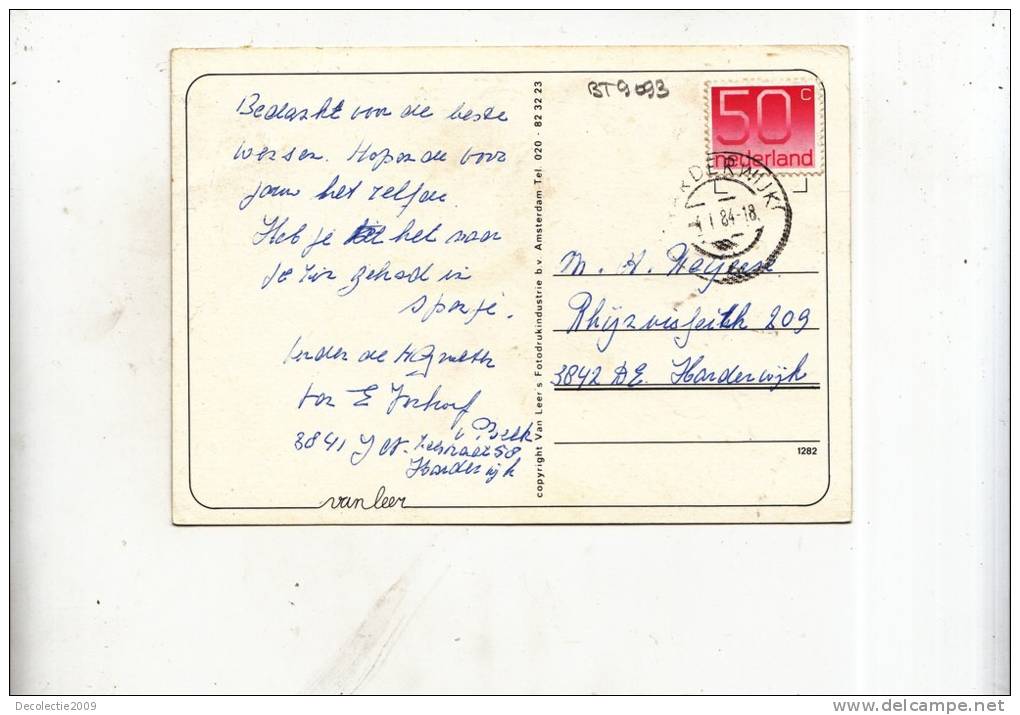 Bedankt voor de beste
wensen. Hopende voor
jouw het zelfde.
Heb je het naar
je zin gehad in
spanje.
E
3841 58
Harderwijk
van leer
copyright Van Leer's Fotodrukindustrie b.v. Amsterdam-Tel. 020 - 82 32 23
BT9093
50 C
nederland
HARDERWIJK
I 84-18
M. A.
Rhijnvisfeith 209
3842 DE. Harderwijk
1282
Decolectie2009
www.delcampe.net